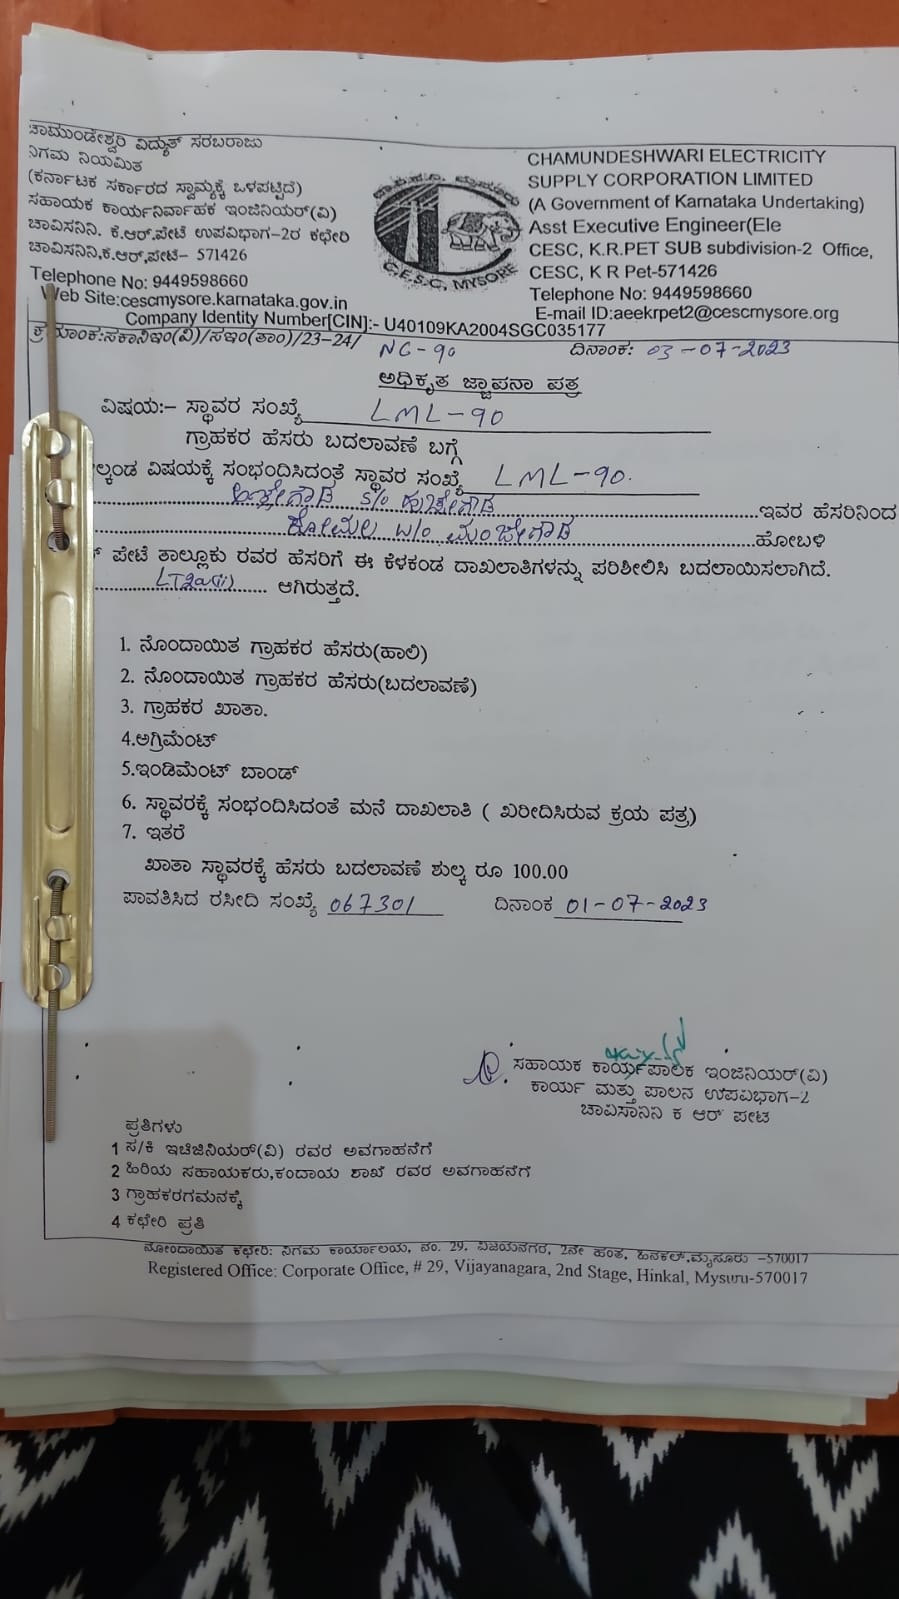 ಚಾಮುಂಡೇಶ್ವರಿ ವಿದ್ಯುತ್ ಸರಬರಾಜು
ನಿಗಮ ನಿಯಮಿತ
(ಕರ್ನಾಟಕ ಸರ್ಕಾರದ ಸ್ವಾಮ್ಯಕ್ಕೆ ಒಳಪಟ್ಟಿದೆ)
ಸಹಾಯಕ ಕಾರ್ಯನಿರ್ವಾಹಕ ಇಂಜಿನಿಯರ್(ವಿ)
ಚಾವಿಸನಿನಿ. ಕೆ.ಆರ್.ಪೇಟೆ ಉಪವಿಭಾಗ-2ರ ಕಛೇರಿ
ಚಾವಿಸನಿನಿ,ಕೆ.ಆರ್,ಪೇಟೆ- 571426
Telephone No: 9449598660
Web Site:cescmysore.karnataka.gov.in
C.E.S.C, MYSORE
CHAMUNDESHWARI ELECTRICITY
SUPPLY CORPORATION LIMITED
(A Government of Karnataka Undertaking)
Asst Executive Engineer(Ele
CESC, K.R.PET SUB subdivision-2 Office,
CESC, K R Pet-571426
Telephone No: 9449598660
E-mail ID:aeekrpet2@cescmysore.org
Company Identity Number[CIN]:- U40109KA2004SGC035177
ಕ್ರಮಾಂಕ:ಸಕಾನಿಇಂ(ವಿ)/ಸಇಂ(ತಾಂ)/23-24/ NC-90 ದಿನಾಂಕ: 03-07-2023
ಅಧಿಕೃತ ಜ್ಞಾಪನಾ ಪತ್ರ
ವಿಷಯ:- ಸ್ಥಾವರ ಸಂಖ್ಯೆ LML-90
ಗ್ರಾಹಕರ ಹೆಸರು ಬದಲಾವಣೆ ಬಗ್ಗೆ
ಲ್ಕಂಡ ವಿಷಯಕ್ಕೆ ಸಂಭಂದಿಸಿದಂತೆ ಸ್ಥಾವರ ಸಂಖ್ಯೆ LML-90.
S/o ಹುಚ್ಚೇಗೌಡ ಇವರ ಹೆಸರಿನಿಂದ
ಕೋಮಲ w/o ಮಂಜೇಗೌಡ ಹೋಬಳಿ
ಪೇಟೆ ತಾಲ್ಲೂಕು ರವರ ಹೆಸರಿಗೆ ಈ ಕೆಳಕಂಡ ದಾಖಲಾತಿಗಳನ್ನು ಪರಿಶೀಲಿಸಿ ಬದಲಾಯಿಸಲಾಗಿದೆ.
ಆಗಿರುತ್ತದೆ.
1. ನೊಂದಾಯಿತ ಗ್ರಾಹಕರ ಹೆಸರು(ಹಾಲಿ)
2. ನೊಂದಾಯಿತ ಗ್ರಾಹಕರ ಹೆಸರು(ಬದಲಾವಣೆ)
3. ಗ್ರಾಹಕರ ಖಾತಾ.
4.ಅಗ್ರಿಮೆಂಟ್
5.ಇಂಡಿಮೆಂಟ್ ಬಾಂಡ್
6. ಸ್ಥಾವರಕ್ಕೆ ಸಂಭಂದಿಸಿದಂತೆ ಮನೆ ದಾಖಲಾತಿ ( ಖರೀದಿಸಿರುವ ಕ್ರಯ ಪತ್ರ)
7. ಇತರೆ
ಖಾತಾ ಸ್ಥಾವರಕ್ಕೆ ಹೆಸರು ಬದಲಾವಣೆ ಶುಲ್ಕ ರೂ 100.00
ಪಾವತಿಸಿದ ರಸೀದಿ ಸಂಖ್ಯೆ 067301 ದಿನಾಂಕ 01-07-2023
ಸಹಾಯಕ ಕಾರ್ಯಪಾಲಕ ಇಂಜಿನಿಯರ್(ವಿ)
ಕಾರ್ಯ ಮತ್ತು ಪಾಲನ ಉಪವಿಭಾಗ-2
ಚಾವಿಸಾನಿನಿ ಕ ಆರ್ ಪೇಟ
ಪ್ರತಿಗಳು
1 ಸ/ಕಿ ಇಚಿಜಿನಿಯರ್(ವಿ) ರವರ ಅವಗಾಹನೆಗೆ
2 ಹಿರಿಯ ಸಹಾಯಕರು,ಕಂದಾಯ ಶಾಖೆ ರವರ ಅವಗಾಹನೆಗೆ
3 ಗ್ರಾಹಕರಗಮನಕ್ಕೆ
4 ಕಛೇರಿ ಪ್ರತಿ
ನೋಂದಾಯಿತ ಕಛೇರಿ: ನಿಗಮ ಕಾರ್ಯಾಲಯ, ನಂ. 29, ವಿಜಯನಗರ, 2ನೇ ಹಂತ, ಹಿನಕಲ್,ಮೈಸೂರು -570017
Registered Office: Corporate Office, # 29, Vijayanagara, 2nd Stage, Hinkal, Mysuru-570017